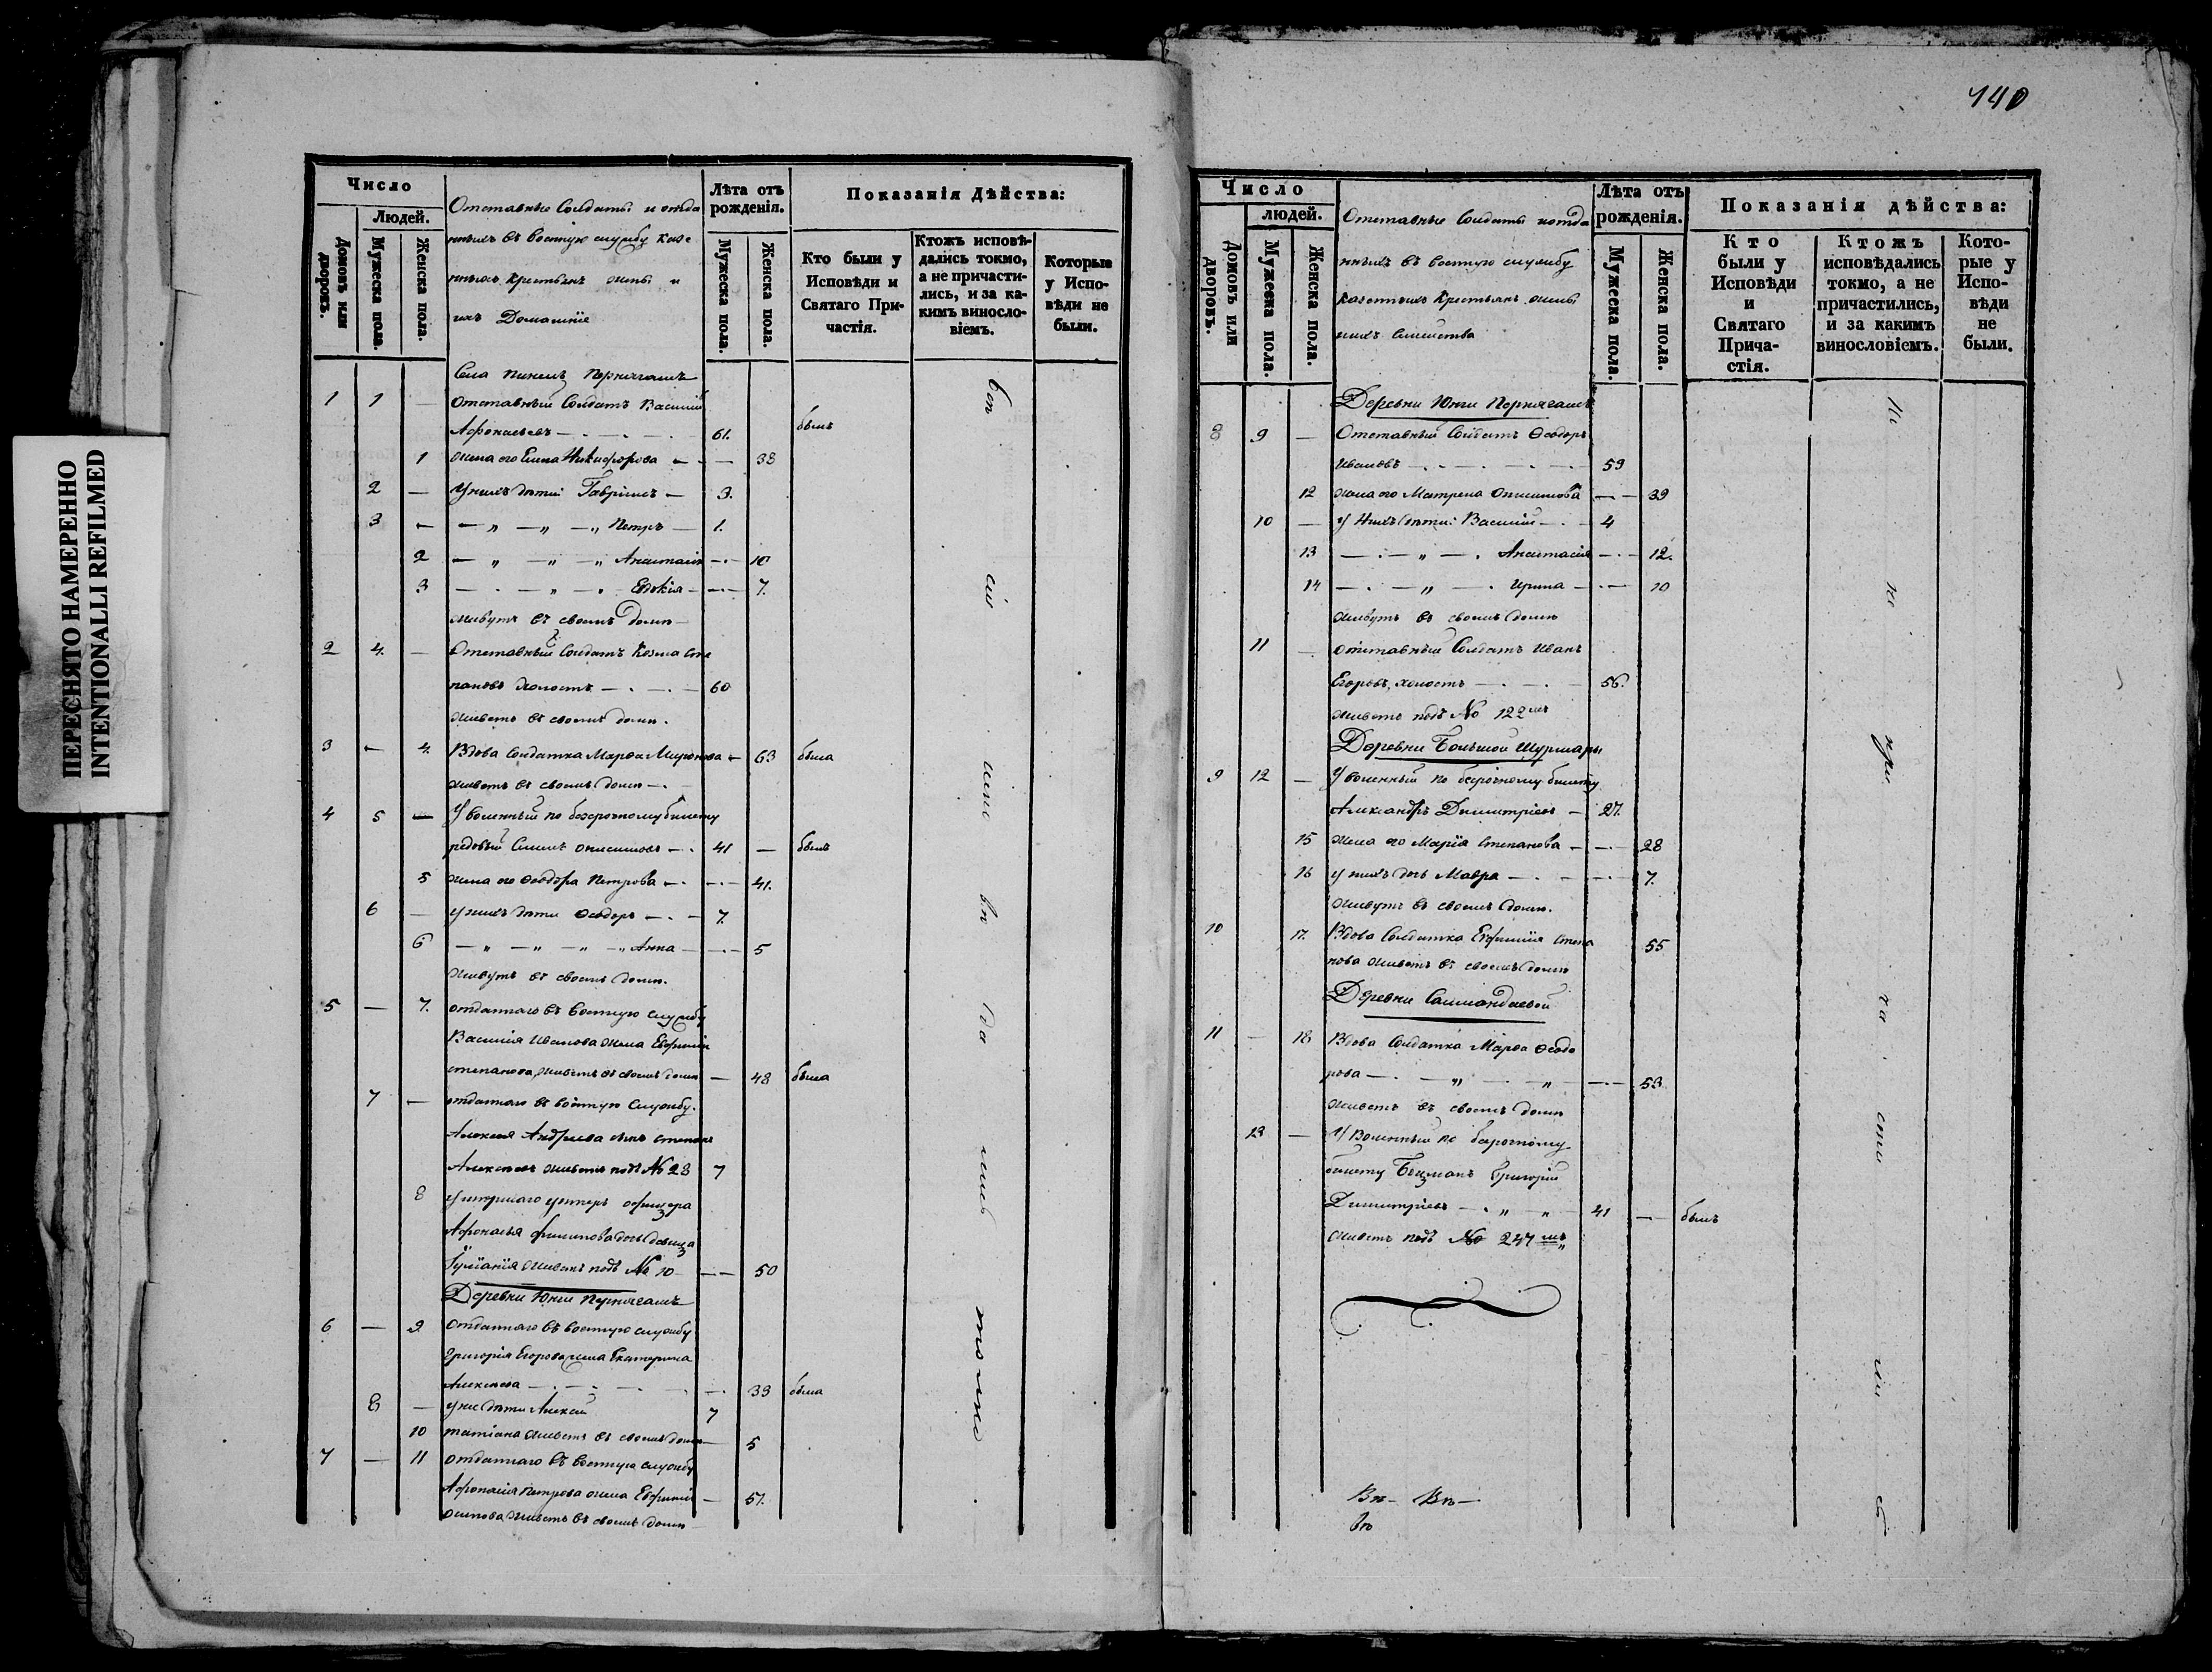 ПЕРЕСНЯТО НАМЕРЕННО
INTENTIONALLI REFILMED
Число
Людей.
Домовъ или дворовъ.
Мужеска пола.
Женска пола.
Отставные Солдаты и отда
нныхъ въ военную службу казе
нныхъ крестьянъ жены и
ихъ Домашніе
Лѣта отъ рожденія.
Мужеска пола.
Женска пола.
Показанія Дѣйства:
Кто были у Исповѣди и Святаго Причастія.
Ктожъ исповѣдались токмо, а не причастились, и за какимъ винословіемъ.
Которые у Исповѣди не были.
Села
1 1 — Отставный Солдатъ Василій
Афонасьевъ — 61. былъ
1 жена его Елена Никифорова — 38
2 — У нихъ дѣти Гавріилъ — 3.
3 — — „ — „ — „ Петръ — 1.
2 — „ — „ — „ Анастасія — 10
3 — „ — „ Евдокія — 7.
живутъ въ своемъ домѣ
2 4. — Отставный Солдатъ Козма Сте
пановъ холостъ — 60
живетъ въ своемъ домѣ.
3 — 4. Вдова Солдатка Марѳа Миронова — 63 была
живетъ въ своемъ домѣ
4 5 — Уволенный по безсрочному билету
рядовый Онисимовъ — 41 — былъ
5 жена его Ѳеодора Петрова — 41.
6 — у нихъ дѣти Ѳеодоръ — 7.
6 — „ — „ — „ — „ Анна — 5
живутъ въ своемъ домѣ.
5 — 7. отданнаго въ военную службу
Василія Иванова жена Евфимія
степанова, живетъ въ своемъ домѣ — 48 была
7 — отданнаго въ военную службу.
Алексея Андреева сынъ степанъ
Алексеевъ живетъ подъ № 28 7
8 умершаго унтеръ офицера
Афонасья филипова дочь девица
Іуліанія живетъ подъ № 10 — 50
Деревни Юнги
6 — 9 отданнаго въ военную службу
Григорія Егорова жена Екатерина
Алексеева — 39 была
8 — у нее дѣти Алексей 7
10 татіана живетъ въ своемъ домѣ 5
7 — 11 отданнаго въ военную службу
Афонасія петрова жена Евфимія — 57.
осипова живетъ въ своемъ домѣ
140
Число
людей.
Домовъ или дворовъ.
Мужеска пола.
Женска пола.
Отставные Солдаты и отда
нныхъ въ военную службу
казенныхъ крестьянъ жены
и ихъ семейства
Лѣта отъ рожденія.
Мужеска пола.
Женска пола.
Показанія дѣйства:
Кто были у Исповѣди и Святаго Причастія.
Ктожъ исповѣдались токмо, а не причастились, и за какимъ винословіемъ.
Которые у Исповѣди не были.
Деревни Юнги
8 9 — Отставный Солдатъ Ѳеодоръ
Ивановъ — 59
12 жена его Матрена Онисимова — 39
10 — у Нихъ дѣти: Василій — 4
13 — „ — Анастасія — 12.
14 — „ — Ирина — 10
живутъ въ своемъ домѣ
11 — отставный Солдатъ Иванъ
Егоровъ, холостъ — 56.
живетъ подъ № 122мъ
Деревни Большой Шурмары
9 12 — Уволенный по безсрочному билету
Александръ Димитріевъ — 27.
15 жена его Марія Степанова — 28
16 у нихъ дочь Мавра — 7.
живутъ въ своемъ домѣ.
10 17. Вдова Солдатка Евфимія Степа 55
нова живетъ въ своемъ домѣ
Деревни
11 — 18 Вдова Солдатка Марѳа Ѳеодо
рова — „ — „ — 53
живетъ въ своемъ домѣ
13 — Уволенный по безсрочному
билету Григорій
Димитріевъ — „ „ 41 — былъ
живетъ подъ № 247мъ